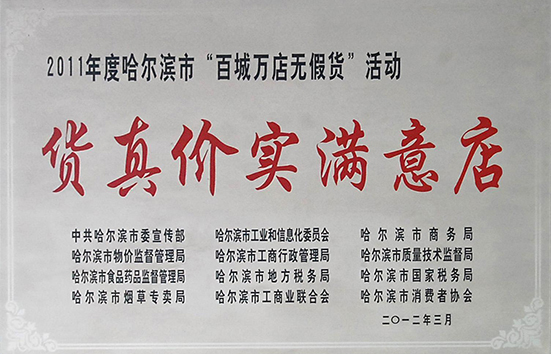 2011年度哈尔滨市“百城万店无假货”活动
货真价实满意店
中共哈尔滨市委宣传部 哈尔滨市工业和信息化委员会 哈尔滨市商务局
哈尔滨市物价监督管理局 哈尔滨市工商行政管理局 哈尔滨市质量技术监督局
哈尔滨市食品药品监督管理局 哈尔滨市地方税务局 哈尔滨市国家税务局
哈尔滨市烟草专卖局 哈尔滨市工商业联合会 哈尔滨市消费者协会
二〇一二年三月